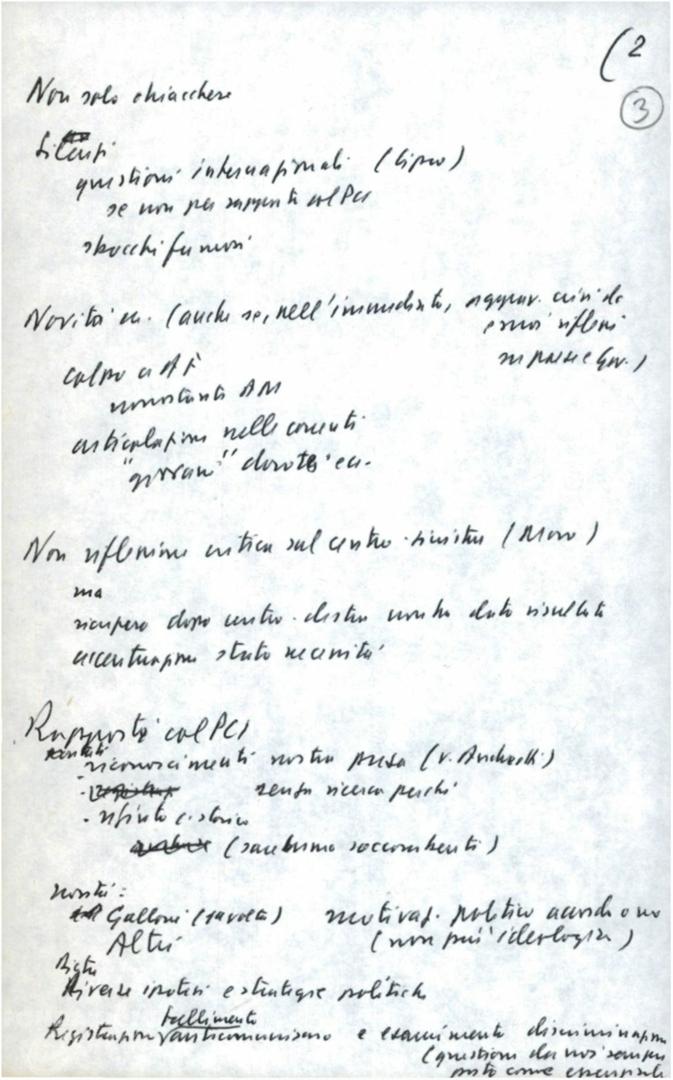 (2
3
Non solo chiacchere
Silenzi
questioni internazionali (Cipro)
se non per rapporti col PCI
sbocchi fumosi
Novità ecc. (anche se, nell'immediato, aggrav. crisi dc
e suoi riflessi
su paese e Gov.)
colpo a AF
nonostante AM
articolazioni nelle correnti
"giovani" dorotei ecc.
Non riflessione critica sul centro-sinistra (Moro)
ma
recupero dopo centro-destra non ha dato risultati
accentuazioni stato necessità
Rapporto col PCI
scontati
- riconoscimenti nostra forza (v. Andreotti)
- senza ricerca perchè
- rifiuto c. storico
(saremmo soccombenti)
novità:
Galloni (Savona) motivaz. politica accordo o no
Altri (non più ideologia)
Diverse ipotesi e strategie politiche
Registrazioni fallimento anticomunismo e esaurimento discriminazione
(questione da noi sempre
posta come essenziale